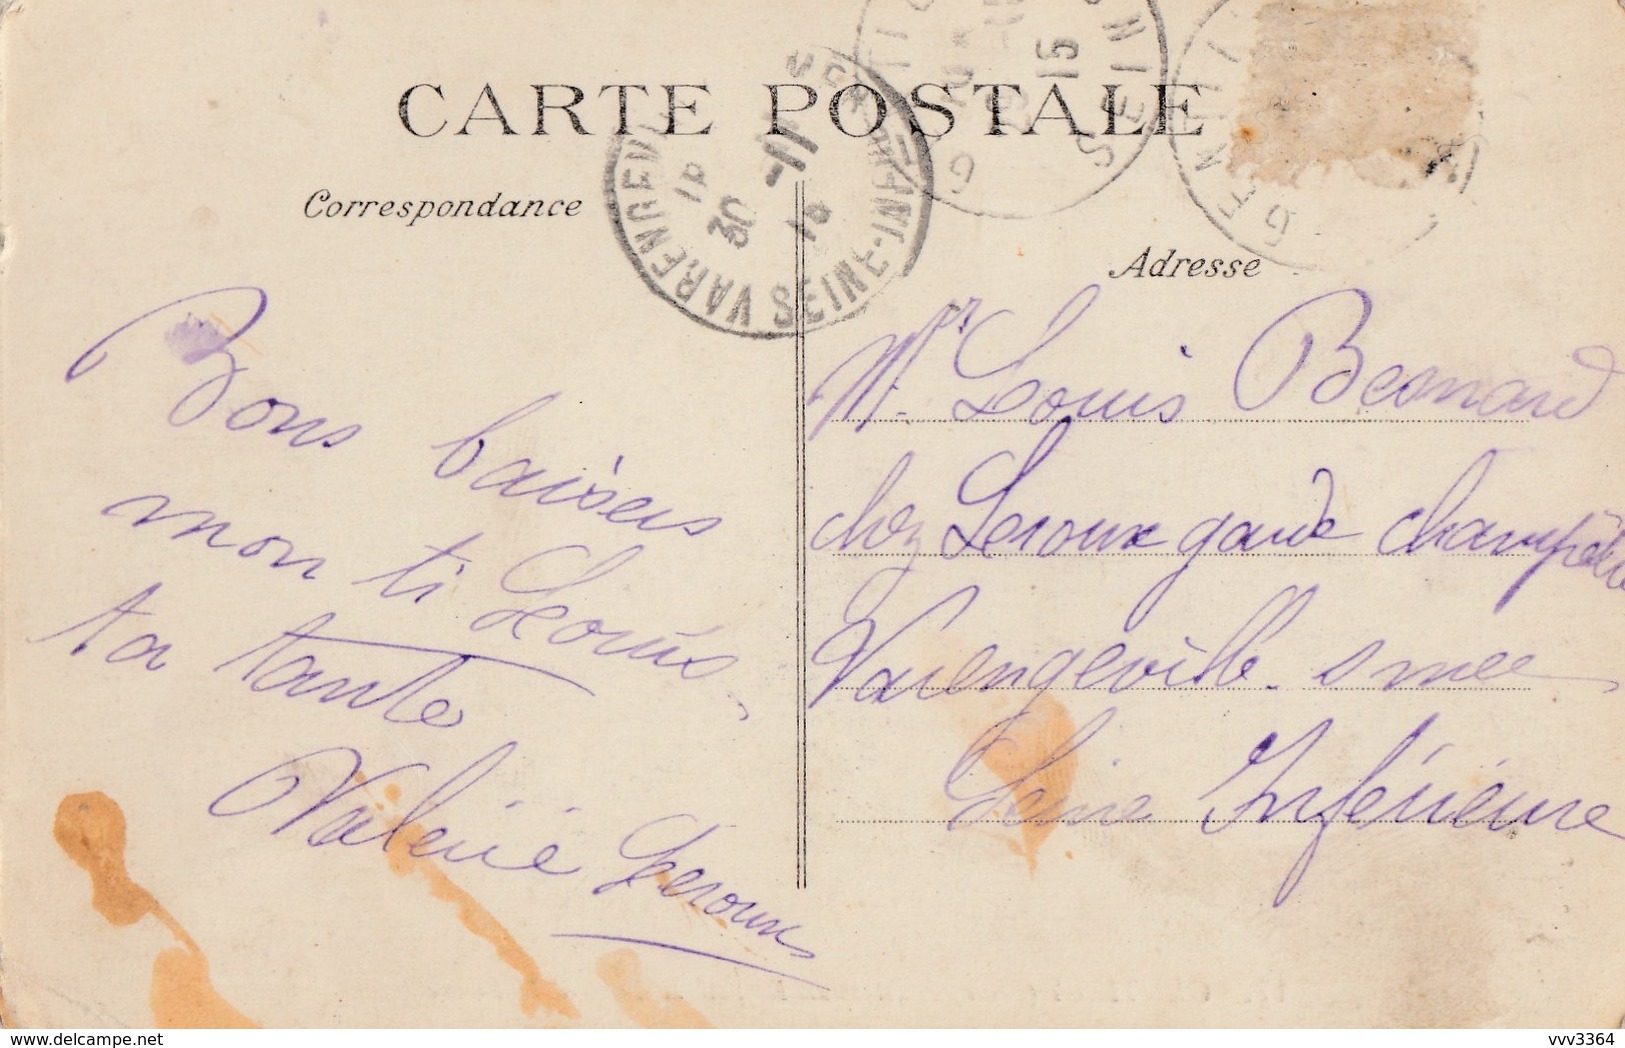 CARTE POSTALE
Correspondance
Adresse
VARENGEVILLE-SUR-MER
SEINE-INFRE
18
30 -11
15
GENTILLY
SEINE
15
Bons baisers
mon ti Louis
ta tante
Valérie Leroux
Mr. Louis Bernard
chez Leroux garde champêtre
Varengeville s mer
Seine Inférieure
vvv3364